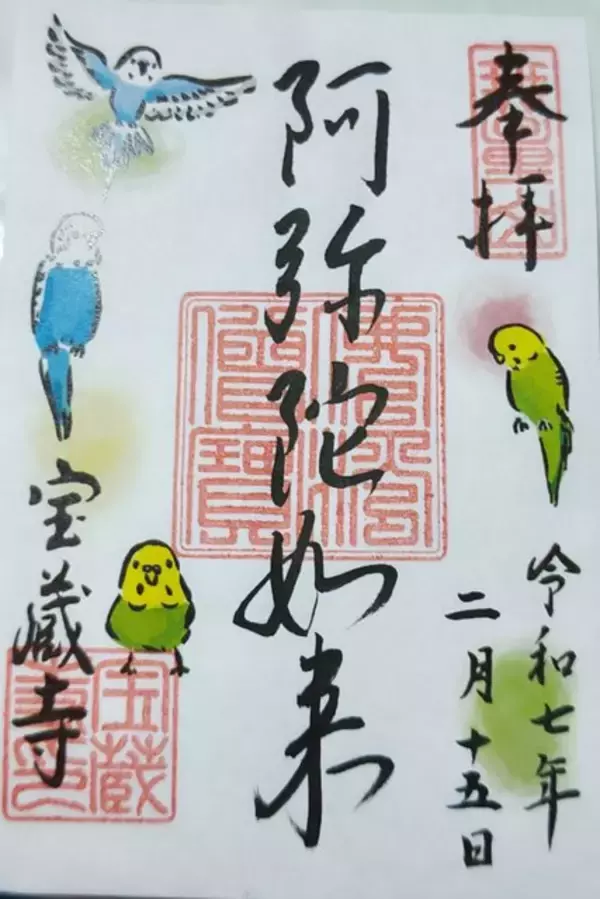 奉拝
令和七年
二月十五日
阿弥陀如来
佛法僧寶
宝蔵寺